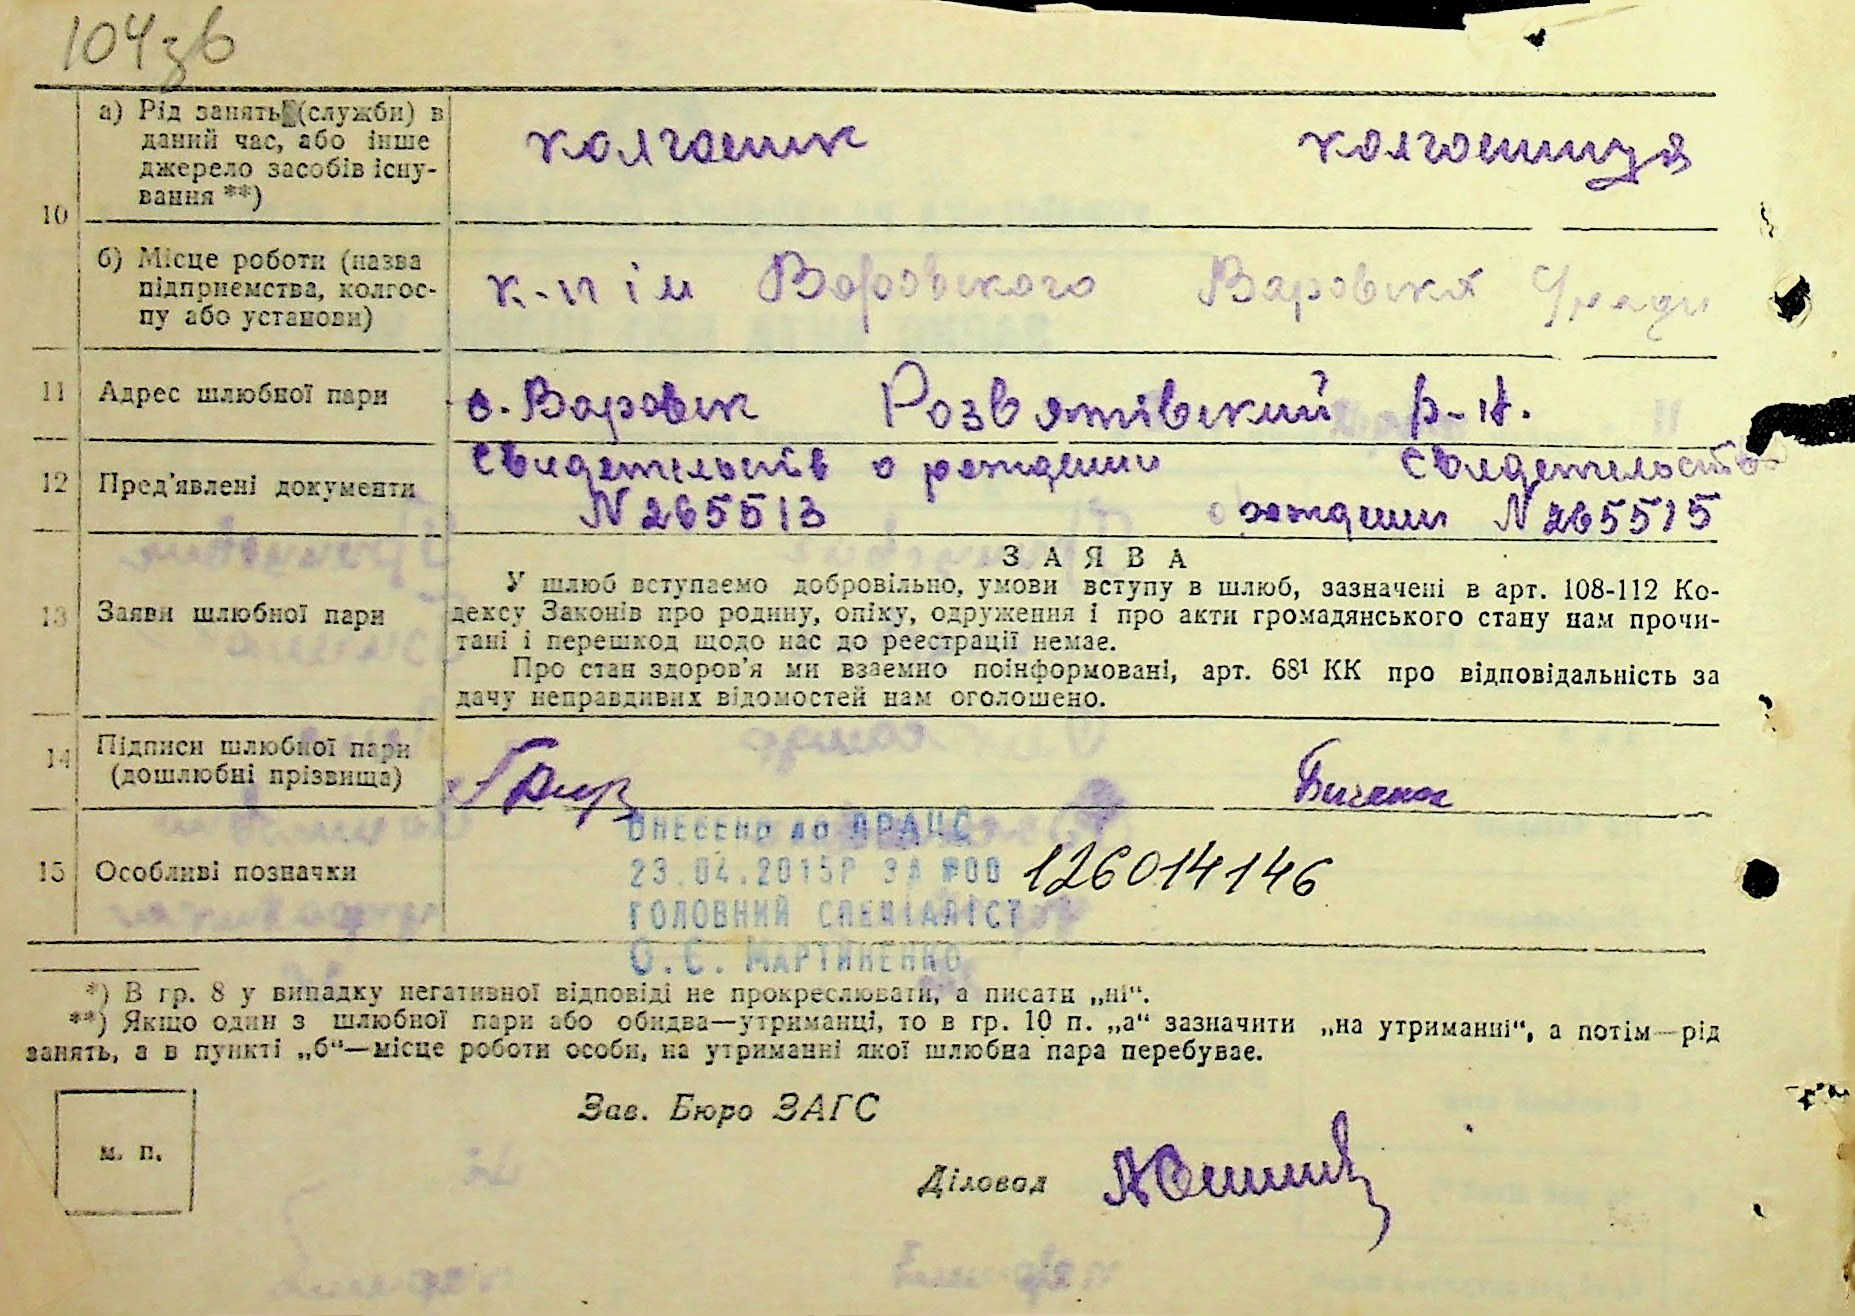 104зв
10
а) Рід занять (службии) в
даний час, або інше
джерело засобів існу-
вання **)
колгосник
колгосниця
б) Місце роботи (назва
підприємства, колгос-
пу або установи)
к-п ім Воровского Варовская
11 Адрес шлюбної пари
с. Варовск Розважівский р-н.
12 Пред'явлені документи
Свидетельств о рождении
N 265513
Свидетельств
о рождении N 265515
13 Заяви шлюбної пари
ЗАЯВА
У шлюб вступаємо добровільно, умови вступу в шлюб, зазначені в арт. 108-112 Ко-
дексу Законів про родину, опіку, одруження і про акти громадянського стану нам прочи-
тані і перешкод щодо нас до реєстрації немає.
Про стан здоров'я ми взаємно поінформовані, арт. 68¹ КК про відповідальність за
дачу неправдивих відомостей нам оголошено.
14 Підписи шлюбної пари
(дошлюбні прізвища)
15 Особливі позначки
ВНЕСЕНО ДО ДРАЦС
23.04.2015Р ЗА №00 126014146
ГОЛОВНИЙ СПЕЦІАЛІСТ
О.С. МАРТИНЕНКО
*) В гр. 8 у випадку негативної відповіді не прокреслювати, а писати „ні“.
**) Якщо один з шлюбної пари або обидва—утриманці, то в гр. 10 п. „а“ зазначити „на утриманні“, а потім—рід
занять, а в пункті „б“—місце роботи особи, на утриманні якої шлюбна пара перебуває.
м. п.
Зав. Бюро ЗАГС
Діловод